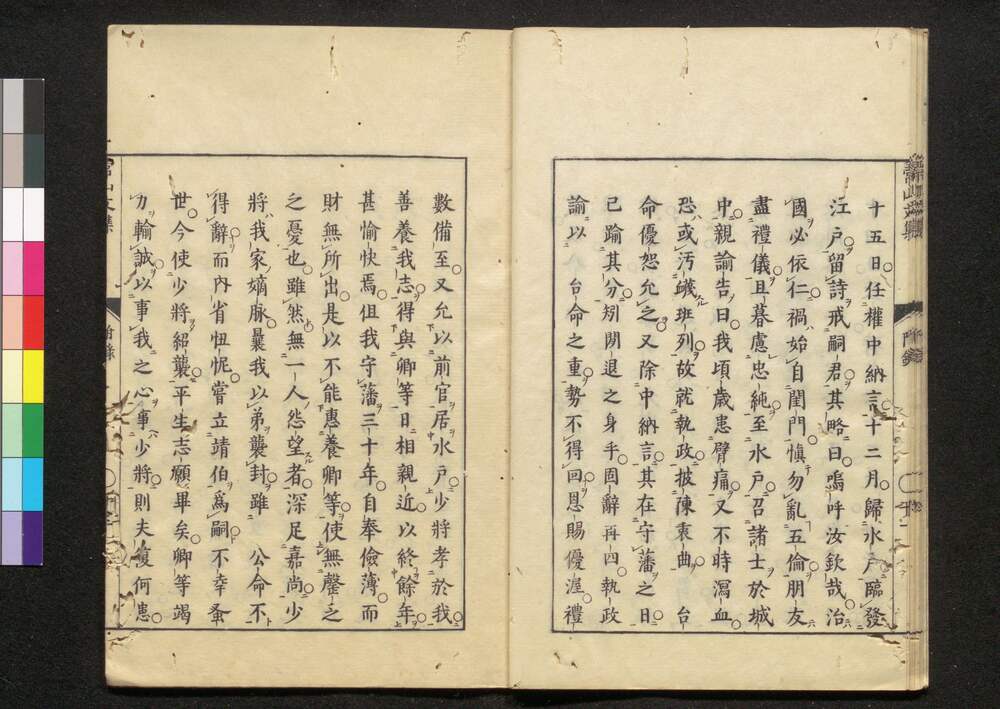 十五日任權中納言十二月歸水戸臨發
江戸留詩戒嗣君其略曰嗚呼汝欽哉治
國必依仁禍始自閨門愼勿亂五倫朋友
盡禮儀且暮慮忠純至水戸召諸士於城
中親諭告曰我頃歳患臂痛又不時瀉血
恐或汚穢班列故就執政披陳衷曲台
命優恕允之又除中納言其在守藩之日
已踰其分矧閑退之身乎固辭再四執政
諭以台命之重勢不得回恩賜優渥禮
數備至又允以前官居水戸少將孝於我
善養我志得與卿等日相親近以終餘年
甚愉快焉但我守藩三十年自奉儉薄而
財無所出是以不能惠養卿等使無罄之
之憂也雖然無一人怨望者深足嘉尚少
將我家嫡脉曩我以弟襲封雖公命不
得辭而内省忸怩嘗立靖伯爲嗣不幸蚤
世今使少將紹襲平生志願畢矣卿等竭
力輸誠以事我之心事少將則夫復何患